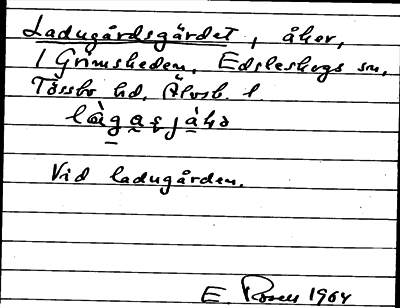 Ladugårdsgärdet, åker,
1 Grimsheden, Edsleskogs sn,
Tössbo hd, Älvsb. l.
Vid ladugården.
E. Rosell 1964